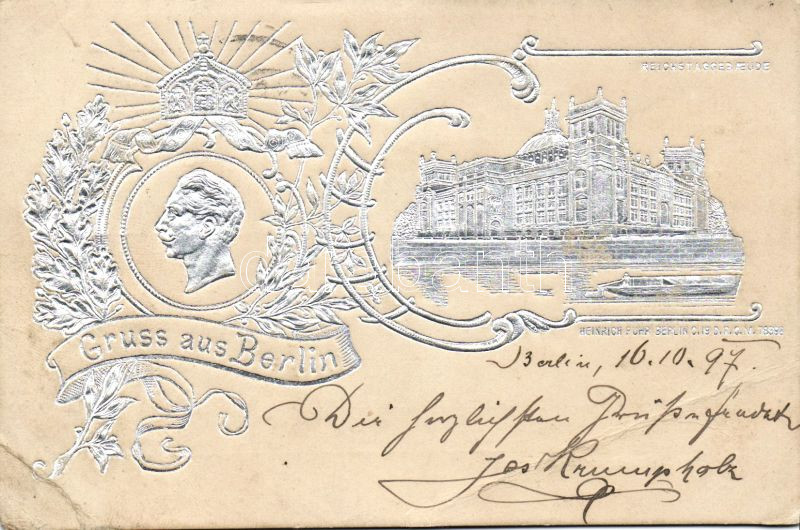 REICHSTAGGEBÆUDE
Gruss aus Berlin
HEINRICH FUHR BERLIN C.19 D.R.G.M.
Berlin, 10.10.97.
Die herzlichsten Grüße
Jos Krumpholz